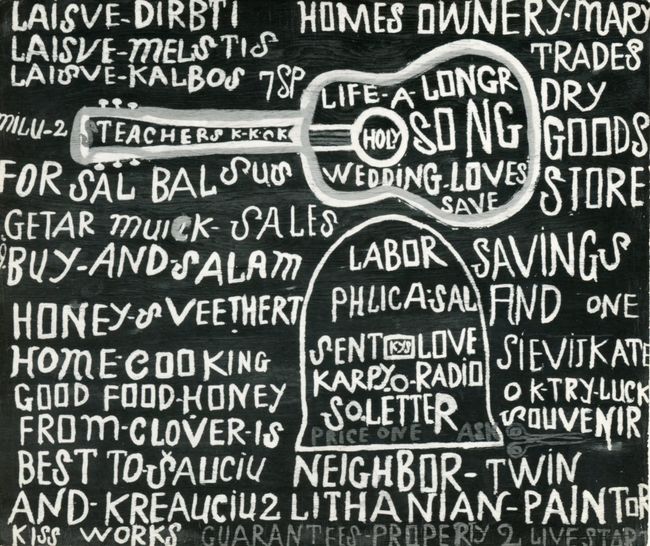 LAISVE-DIRBTI HOMES OWNERY-MARY
LAISVE-MELSTIS TRADES
LAISVE-KALBOS 7SP LIFE-A-LONGR DRY
MILU-2 STEACHERS K-K-OK HOLY SONG GOODS
FOR SAL BALSUS WEDDING-LOVES STORE
SAVE
GETAR MUICK-SALES
BUY-AND-SALAM LABOR SAVINGS
HONEY-SVEETHERT PHLICA-SAL AND ONE
HOME-COOKING SENT KYS LOVE SIEVIJKATE
GOOD FOOD-HONEY KARPY-O-RADIO OK-TRY-LUCK
FROM-CLOVER-IS SO-LETTER SOUVENIR
PRICE ONE ASK
BEST TO-ŠAUCIU NEIGHBOR-TWIN
AND-KREAUCIU2 LITHANIAN-PAINTOR
KISS WORKS GUARANTEES-PROPERLY 2 LIVE-START